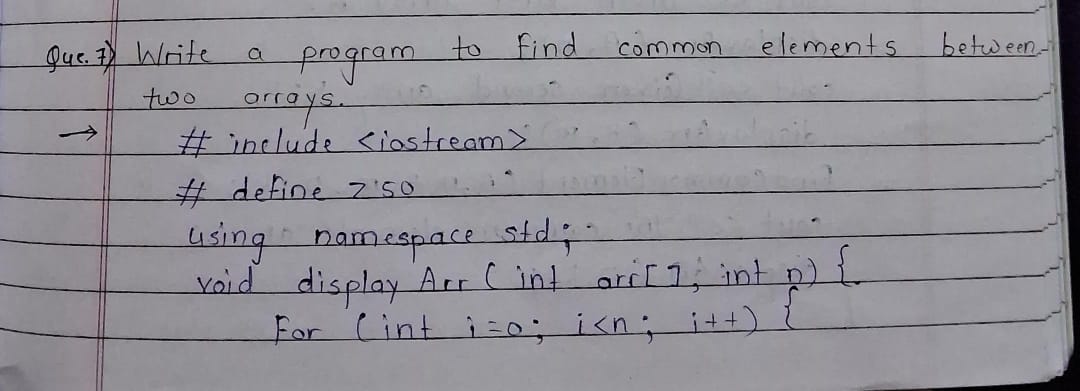 Que. 7) Write a program to find common elements between
two arrays.
→ # include <iostream>
# define z 50
using namespace std;
void display Arr ( int arr[], int n) {
For (int i=0; i<n; i++) {